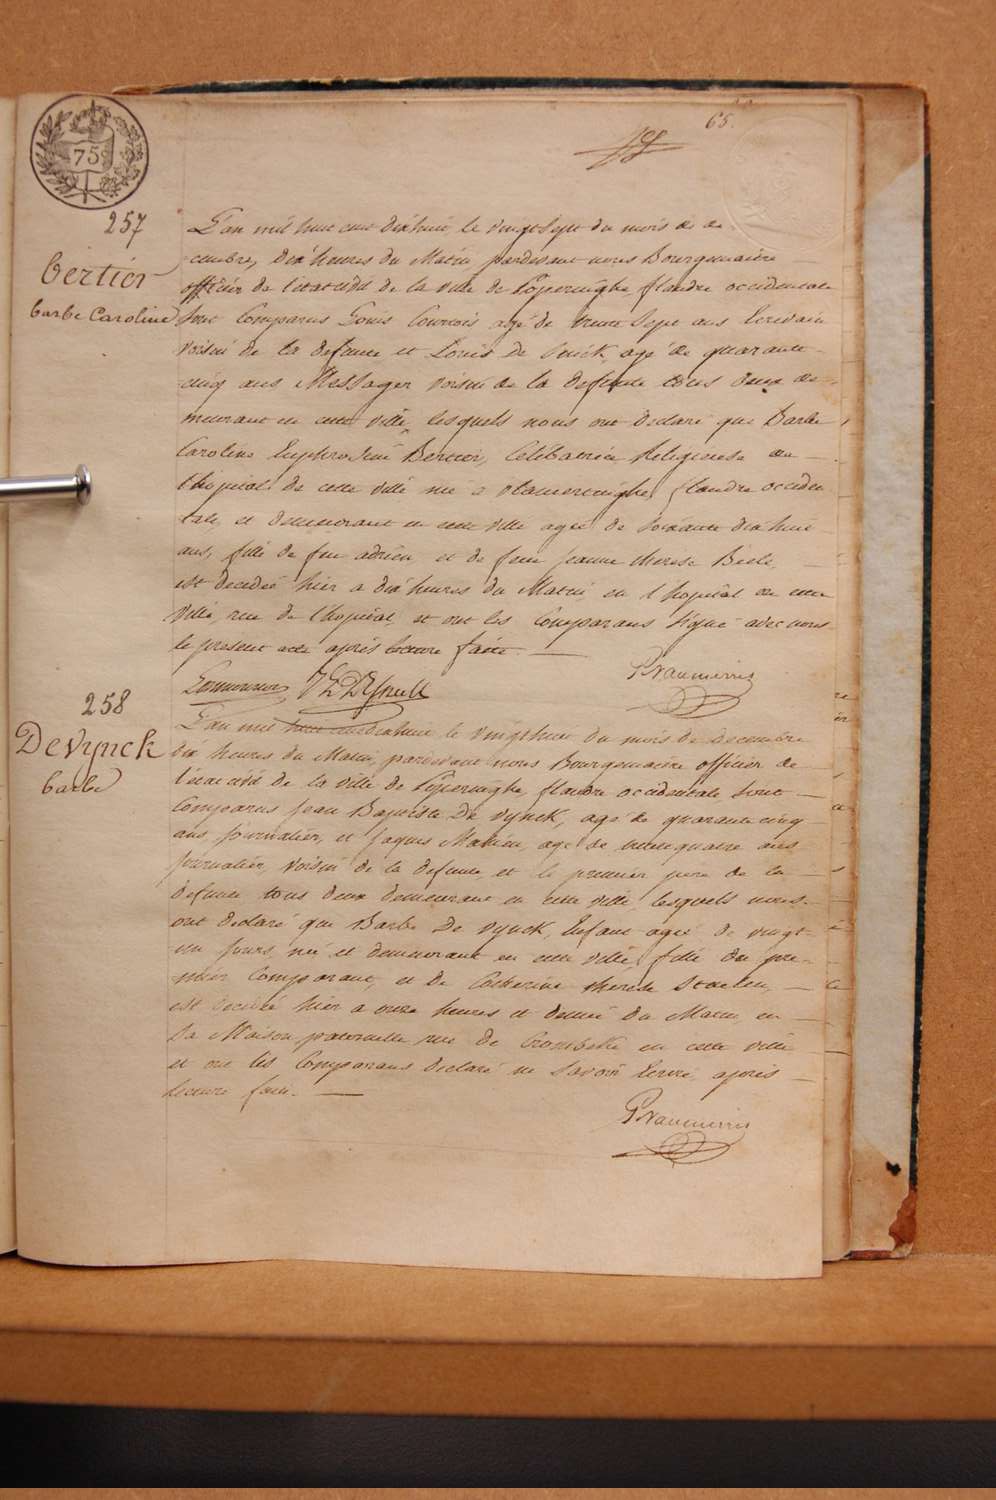 65.
75
257
Bertier
barbe Caroline
L'an mil huit cent dixhuit, le vingtsept du mois de de-
cembre, dix heures du Matin pardevant nous Bourgemaitre
officier de l'état civil de la ville de Poperinghe, flandre occidentale
sont Comparus Louis Courtois agé de trente sept ans Ecrivain
voisin de la defunte et Louis de agé de quarante-
cinq ans Messager voisin de la defunte tous deux de-
meurant en cette ville, lesquels nous ont declaré que Barbe
Caroline Euphrosine Bertier, Célébataire Religieuse de
l'hopital de cette ville née a vlamertinghe, flandre occiden
tale, et demeurant en cette ville agée de soixante dix huit
ans, fille de feu adrien, et de feue Jeanne therese Biele,
est decedée hier a dix heures du Matin, en l'hopital de cette
ville, rue de l'hopital, et ont les Comparans signé avec nous
le present acte après lecture faite.
258
DeVynck
barbe
L'an mil huit cent dixhuit le vingthuit du mois de Decembre
dix heures du Matin, pardevant nous Bourgemaitre officier de
l'état civil de la ville de Poperinghe, flandre occidentale sont
Comparus Jean Baptiste De Vynck, agé de quarante cinq
ans journalier, et Jaques Mahieu, agé de ans
journalier, voisin de la defunte et le premier pere de la
defunte tous deux demeurant en cette ville, lesquels nous
ont declaré que Barbe De Vynck, Enfant agée de vingt-
un jours, née et demeurant en cette ville, fille du pre-
mier Comparant, et de Catherine therese Staelen,
est decedée hier a onze heures et demie du Matin en
la Maison paternelle rue de Crombeke en cette ville
et ont les Comparans declaré ne savoir Ecrire, après
lecture faite.